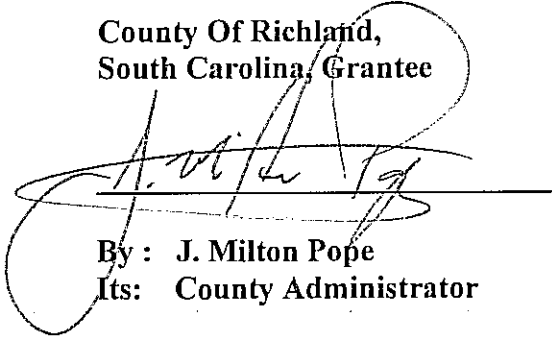 County Of Richland,
South Carolina, Grantee
J. Milton Pope
By : J. Milton Pope
Its: County Administrator